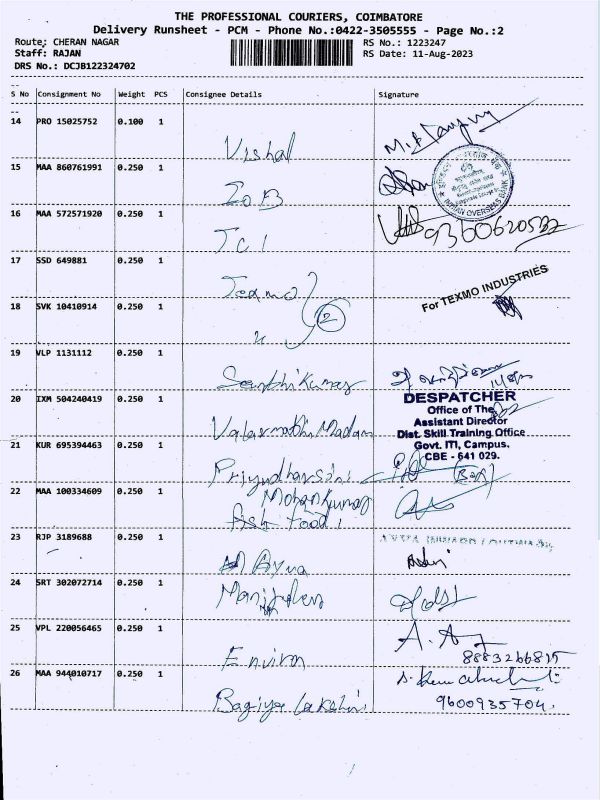 THE PROFESSIONAL COURIERS, COIMBATORE
Delivery Runsheet - PCM - Phone No.:0422-3505555 - Page No.:2
Route: CHERAN NAGAR RS No.: 1223247
Staff: RAJAN RS Date: 11-Aug-2023
DRS No.: DCJB122324702
S No Consignment No Weight PCS Consignee Details Signature
14 PRO 15025752 0.100 1
Vishal
15 MAA 860761991 0.250 1
IOB
INDIAN OVERSEAS BANK
16 MAA 572571920 0.250 1
TCI 9360620532
17 SSD 649881 0.250 1
Texmo
For TEXMO INDUSTRIES
18 SVK 10410914 0.250 1
2
19 VLP 1131112 0.250 1
Senthil Kumar
20 IXM 504240419 0.250 1
DESPATCHER
Office of The
Assistant Director
Dist. Skill Training Office
Govt. ITI, Campus.
CBE - 641 029.
Valarmathi Madam
21 KUR 695394463 0.250 1
Priyadharsini
22 MAA 100334609 0.250 1
Mohan Kumar
Fish Food
23 RJP 3189688 0.250 1
24 SRT 302072714 0.250 1
25 VPL 220056465 0.250 1
Environ
8883266815
26 MAA 944010717 0.250 1
Bagiya Lakshmi
9600935704